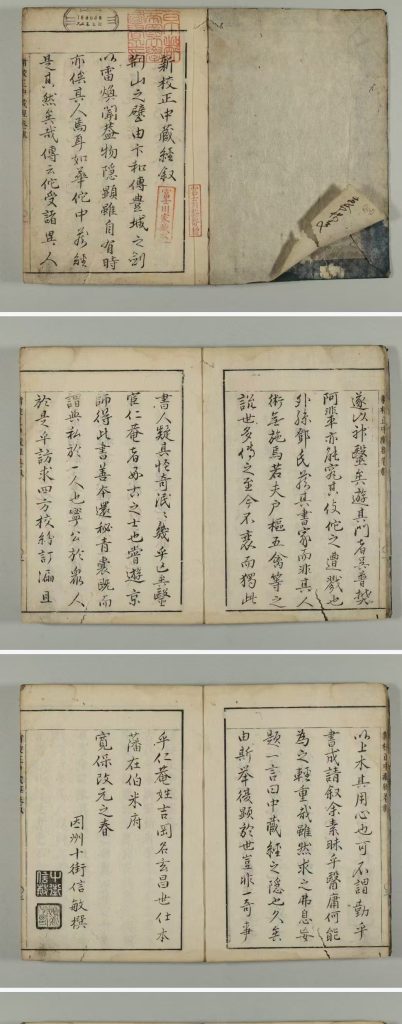 新校正中蔵經叙
荊山之璧由卞和傳豊城之劍
以雷煥聞蓋物隠顕雖自有時
亦俟其人焉耳如華佗中蔵經
是其然矣哉傳云佗受諸異人
遂以神醫矣遊其門者吳普樊
阿輩亦能究其伎佗之遭戮也
外孫鄧氏蔵其書家而非其人
術無施焉若夫戸樞五禽等之
説世多傳之至今不衰而獨此
書人疑其怪奇泯〻幾乎已矣醫
官仁菴者好古之士也嘗遊京
師得此書善本還秘青囊既而
謂與私於一人也寧公於衆人
於是乎訪求四方校紛訂漏且
以上木其用心也可不謂勤乎
書成請叙余素昧乎醫庸何能
為之軽重哉雖然求之弗息妄
題一言曰中蔵經之隠也久矣
由斯挙復顕於世豈非一奇事
乎仁菴姓吉岡名玄昌世仕本
藩在伯米府
寛保改元之春
因州十街信敏撰